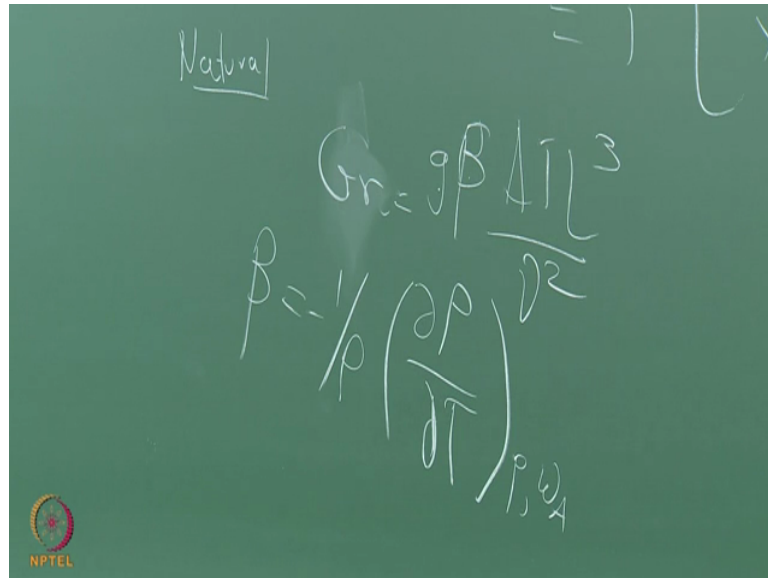 Natural
Gr = gβ ΔT L³ / ν²
β = -1/ρ (∂ρ/∂T)p, ω_A
NPTEL